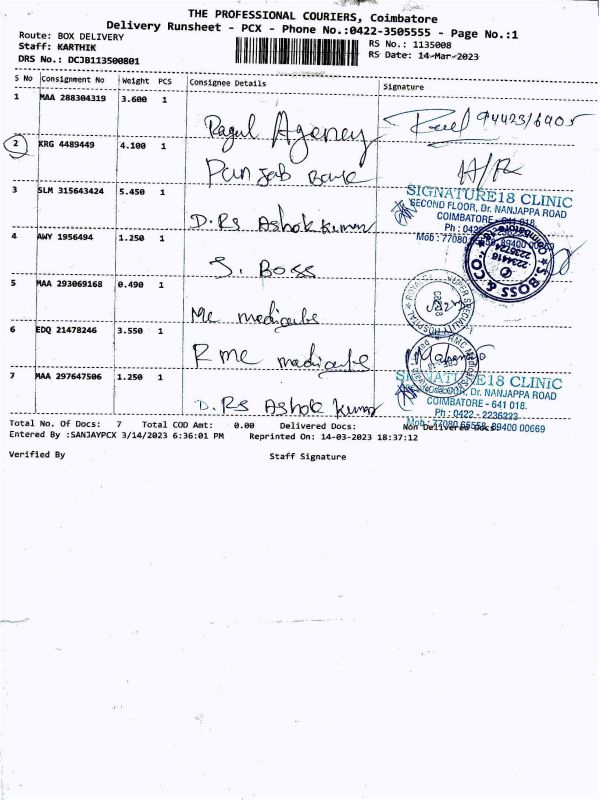 THE PROFESSIONAL COURIERS, Coimbatore
Delivery Runsheet - PCX - Phone No.:0422-3505555 - Page No.:1
Route: BOX DELIVERY
Staff: KARTHIK
DRS No.: DCJB113500801
RS No.: 1135008
RS Date: 14-Mar-2023
S No Consignment No Weight PCS Consignee Details Signature
1 MAA 288304319 3.600 1 Ragul Agency
2 KRG 4489449 4.100 1 Punjab Bank
3 SLM 315643424 5.450 1 D.Rs Ashok Kumar
SIGNATURE18 CLINIC
SECOND FLOOR, Dr. NANJAPPA ROAD
COIMBATORE - 641 018.
4 AWY 1956494 1.250 1 S. Boss
S. BOSS & CO.
5 MAA 293069168 0.490 1 Mc medicals
6 EDQ 21478246 3.550 1 R mc medicals
7 MAA 297647506 1.250 1 D. Rs Ashok Kumar
SIGNATURE18 CLINIC
SECOND FLOOR, Dr. NANJAPPA ROAD
COIMBATORE - 641 018.
Ph : 0422 - 2236223
Mob : 77080 65558, 89400 00669
Total No. Of Docs: 7 Total COD Amt: 0.00 Delivered Docs: Non Delivered Docs:
Entered By :SANJAYPCX 3/14/2023 6:36:01 PM Reprinted On: 14-03-2023 18:37:12
Verified By Staff Signature